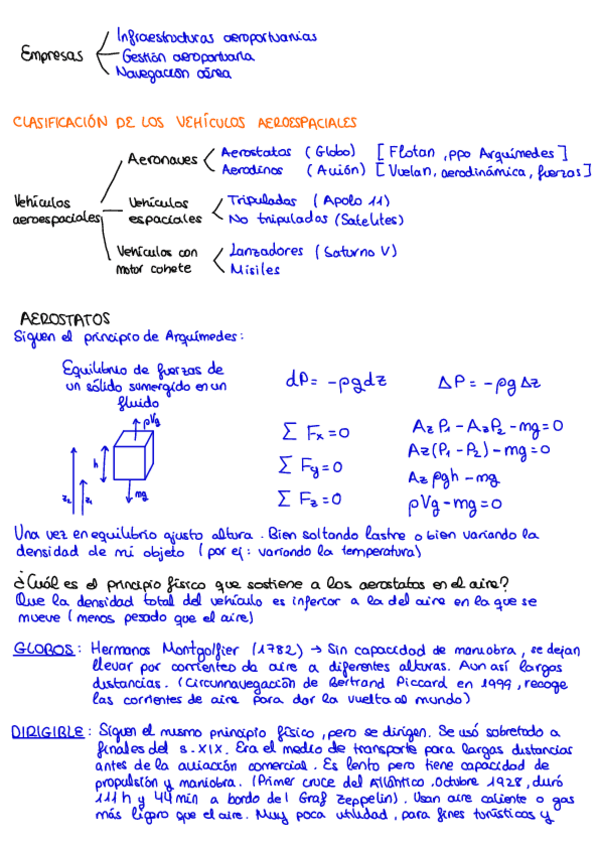 Infraestructuras aeroportuarias
Empresas
Gestión aeroportuaria
Navegación aérea
CLASIFICACIÓN DE LOS VEHÍCULOS AEROESPACIALES
Aeronaves
Aerostatos (Globo) [Flotan, ppo Arquímedes]
Aerodinos (Avión) [Vuelan, aerodinámica, fuerzas]
Vehículos
aeroespaciales
Vehículos
espaciales
Tripulados (Apolo 11)
No tripulados (Satélites)
Vehículos con
motor cohete
Lanzadores (Saturno V)
Misiles
AEROSTATOS
Siguen el principio de Arquímedes:
Equilibrio de fuerzas de
un sólido sumergido en un
fluido
dP = -ρgdz
ΔP = -ρgΔz
ρVg
h
z₂
z₁
mg
Σ Fx = 0
Σ Fy = 0
Σ Fz = 0
Az P₁ - Az P₂ - mg = 0
Az (P₁ - P₂) - mg = 0
Az ρgh - mg
ρVg - mg = 0
Una vez en equilibrio ajusto altura. Bien soltando lastre o bien variando la
densidad de mi objeto (por ej: variando la temperatura)
¿Cuál es el principio físico que sostiene a los aerostatos en el aire?
Que la densidad total del vehículo es inferior a la del aire en la que se
mueve (menos pesado que el aire)
GLOBOS: Hermanos Montgolfier (1782) → Sin capacidad de maniobra, se dejan
llevar por corrientes de aire a diferentes alturas. Aun así largas
distancias. (Circunnavegación de Bertrand Piccard en 1999, recoge
las corrientes de aire para dar la vuelta al mundo)
DIRIGIBLE: Siguen el mismo principio físico, pero se dirigen. Se usó sobretodo a
finales del s.XIX. Era el medio de transporte para largas distancias
antes de la aviación comercial. Es lento pero tiene capacidad de
propulsión y maniobra. (Primer cruce del Atlántico. Octubre 1928, duró
111 h y 44 min a bordo del Graf Zeppelin). Usan aire caliente o gas
más ligero que el aire. Muy poca utilidad, para fines turísticos y